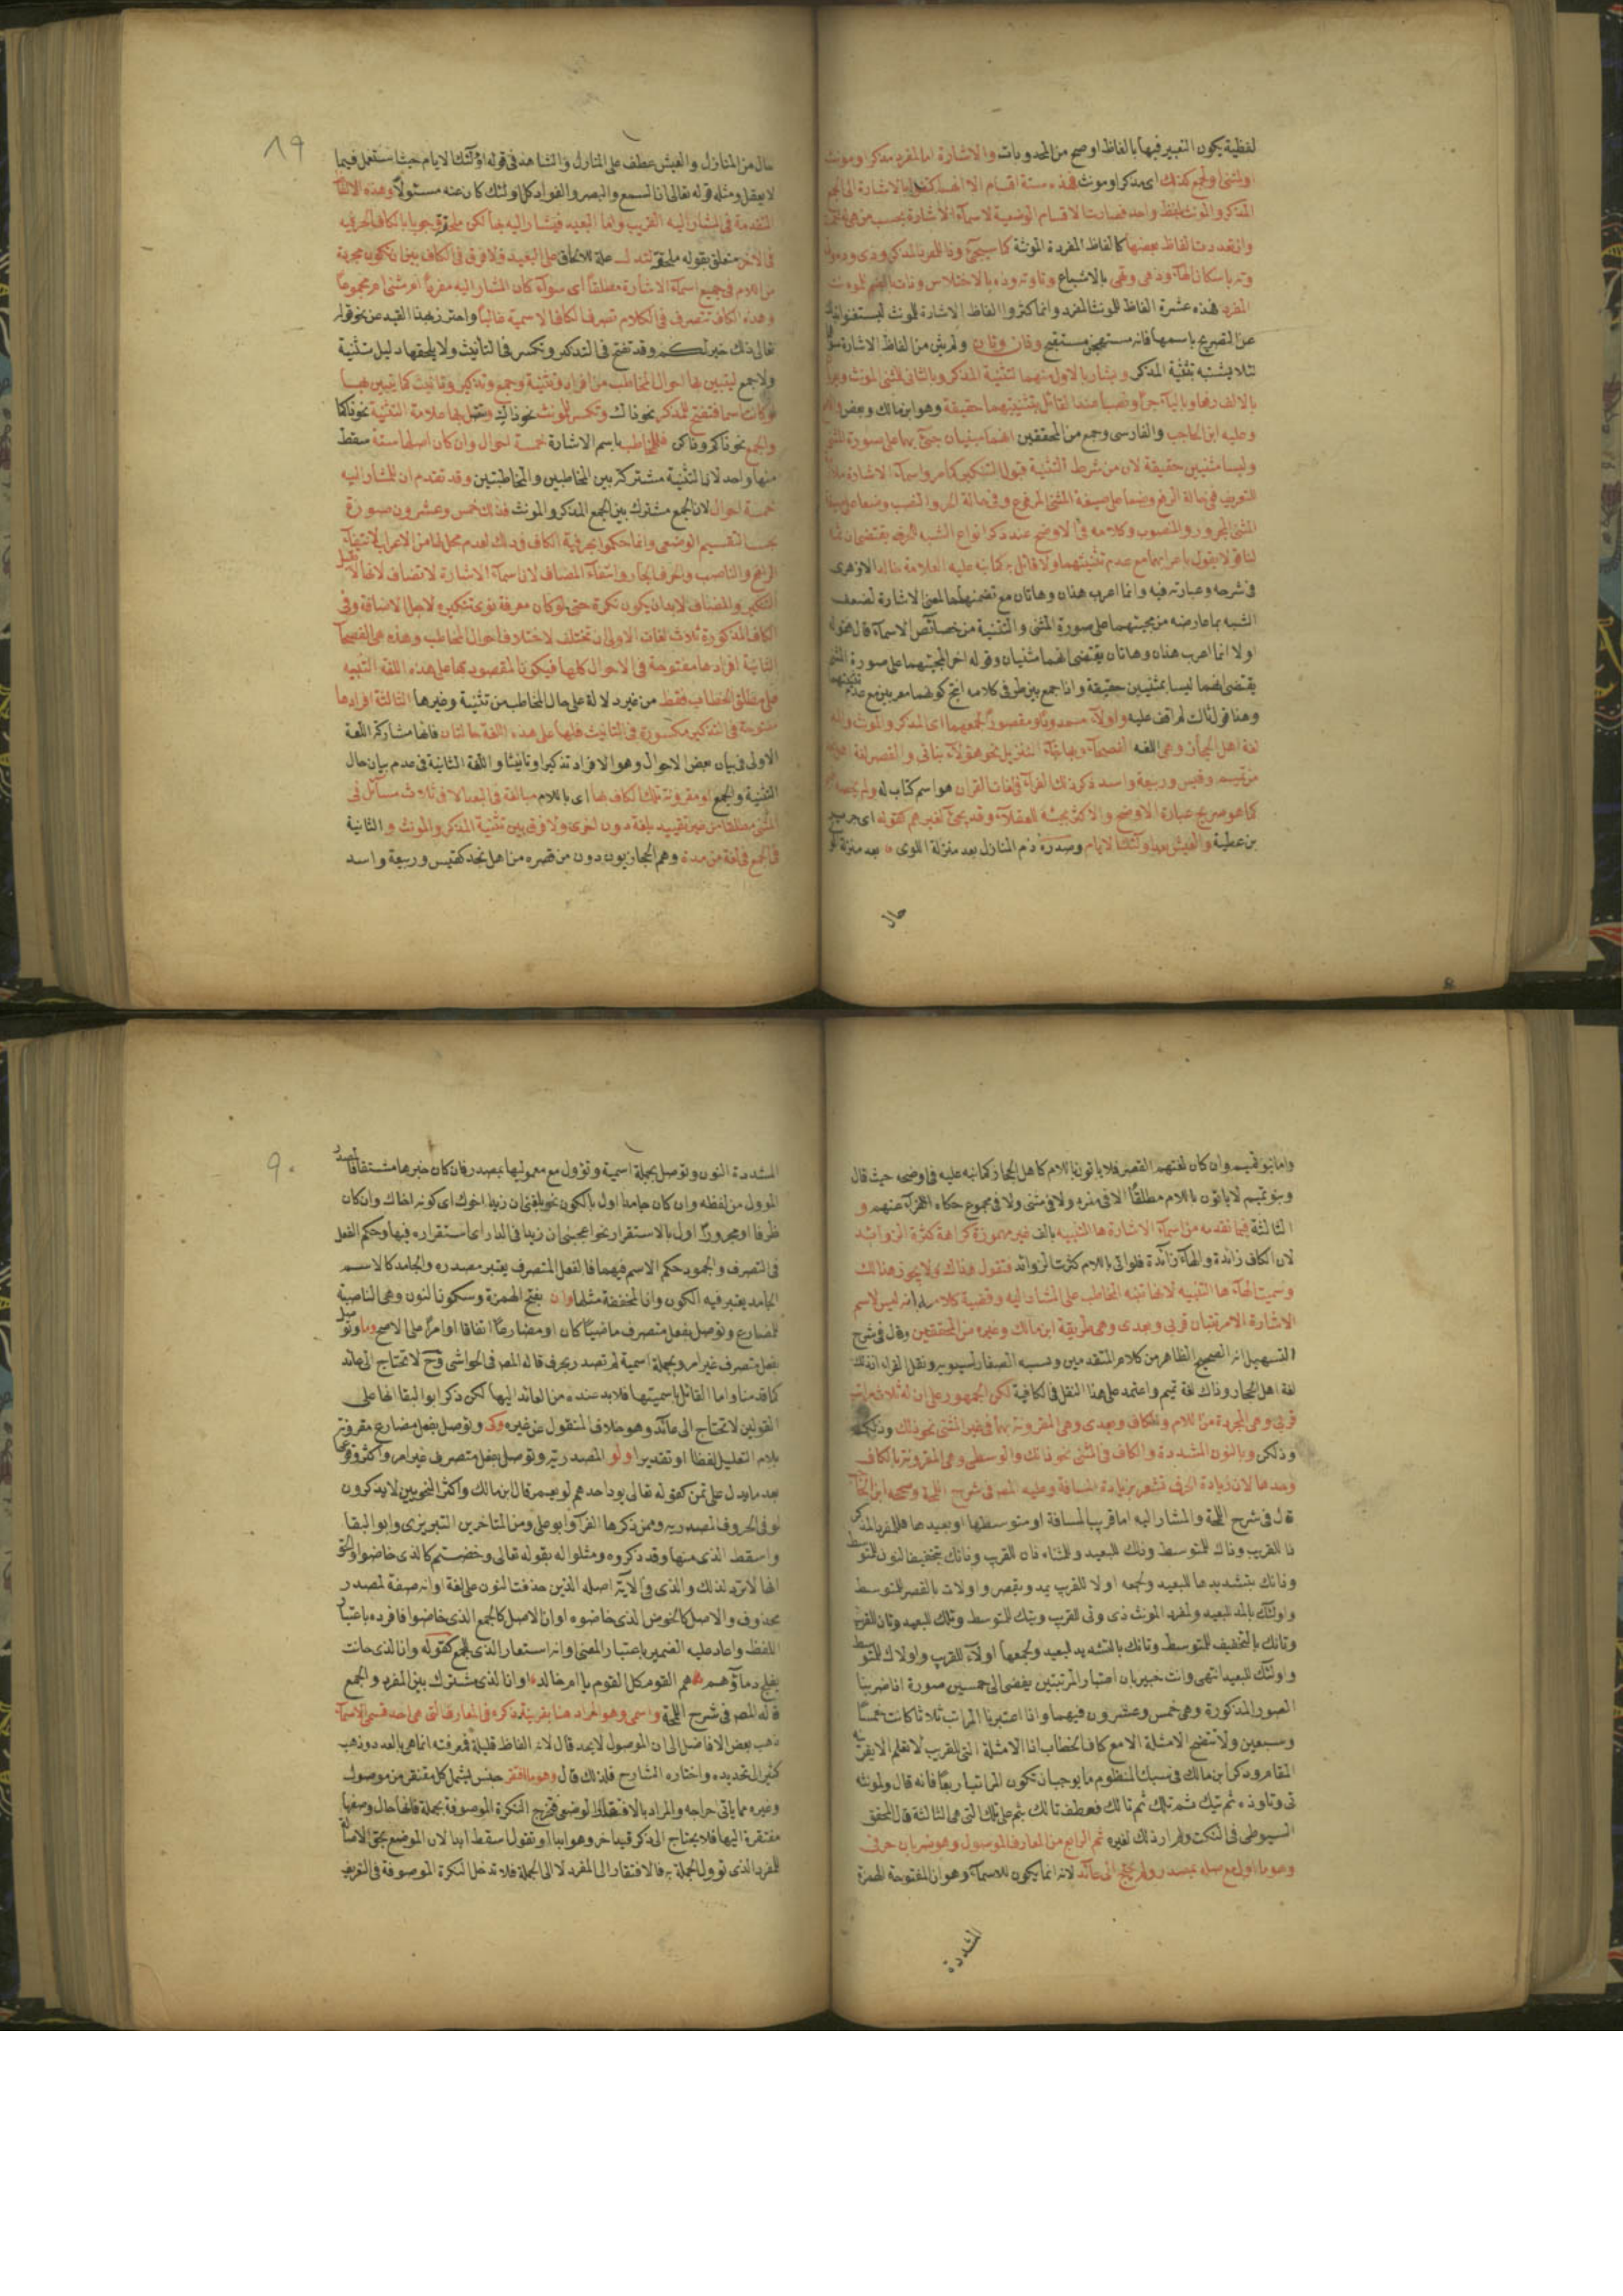 لفظية يكون التعبير فيها بالفاظ اوضح من المحدودات والاشارة اما لمفرد مذكر او مونث
او لمثنى او لجمع كذلك اى مذكر او مونث فهذه ستة اقسام الا انهم بالاشارة الى الجمع
المذكر والمونث بلفظ واحد فصارت الاقسام الوضعية لاسماء الاشارة بحسب من هى له خمسة
وان تعددت الفاظ بعضها كالفاظ المفردة المونثة كما سيجئ وذا للمفرد المذكر وذى وذه
وته باسكان الهاء وذهى وتهى بالاشباع وتا وته وذه بالاختلاس وذات بالضم للمونث
المفرد فهذه عشرة الفاظ للمونث المفرد وانما كثروا الفاظ الاشارة للمونث
عن التصريح باسمها فانه مستهجن مستقبح وذان وتان ولم يثن من الفاظ الاشارة
لئلا يشتبه بتثنية المذكر ويشار بالاول منهما لتثنية المذكر وبالثانى للمثنى المونث
بالالف رفعا وبالياء جرا ونصبا عند القائل بتثنيتهما حقيقة وهو ابن مالك وبعض
وعليه ابن الحاجب والفارسى وجمع من المحققين انهما مبنيان جئ بهما على صورة المثنى
وليسا مثنيين حقيقة لان من شرط التثنية قبول التنكير كما مر واسماء الاشارة
التعريف فى حالة الرفع وضعا على صيغة المثنى المرفوع وفى حالة الجر والنصب وضعا على صيغة
المثنى المجرور والمنصوب وكلامه فى الاوضح عند ذكر انواع الشبه الحرفى يقتضى ان
لنا قولا يقول باعرابهما مع عدم تثنيتهما ولا قائل به كما نبه عليه العلامة خالد الازهرى
فى شرحه وعبارته فيه وانما اعرب هذان وهاتان مع تضمنهما لمعنى الاشارة لضعف
الشبه بما عارضه من مجيئهما على صورة المثنى والتثنية من خصائص الاسماء قال فقوله
اولا انما اعرب هذان وهاتان يقتضى انهما مثنيان وقوله اخرا لمجيئهما على صورة المثنى
يقتضى انهما ليسا بمثنيين حقيقة واذا جمع بين طرفى كلامه انتج كونهما معربين مع عدم تثنيتهما
وهذا قول ثالث لم اقف عليه واولاء ممدودا ومقصورا لجمعهما اى المذكر والمونث والمد
لغة اهل الحجاز وهى اللغة الفصحاء وبها جاء التنزيل نحو هؤلاء بناتى والقصر لغة
من تميم وقيس وربيعة واسد ذكر ذلك الفراء فى لغات القران هو اسم كتاب له ولم
كما هو صريح عبارة الاوضح والاكثر مجيئه للعقلاء وقد يجئ لغيرهم كقوله اى جرير
بن عطية والعيش بعد اولئك الايام وصدره ذم المنازل بعد منزلة اللوى بعد منزلة
حال
٨٩
حال من المنازل والعيش عطف على المنازل والشاهد فى قوله اولئك الايام حيث استعمل فيما
لا يعقل ومثله قوله تعالى ان السمع والبصر والفواد كل اولئك كان عنه مسئولا وهذه الالفاظ
المتقدمة فى المشار اليه القريب واما البعيد فيشار اليه بها لكن ملحقة وجوبا بالكاف الحرفية
فى الاخر متعلق بقوله ملحقة علة للالحاق على البعيد فلا فرق فى الكاف بين ان تكون مجردة
من اللام فى جميع اسماء الاشارة مطلقا اى سواء كان المشار اليه مفردا ام مثنى ام مجموعا
وهذه الكاف تتصرف فى الكلام تصرف الكاف الاسمية غالبا واحترز بهذا القيد عن نحو قوله
تعالى ذلك خير لكم وقد تفتح فى التذكير وتكسر فى التانيث ولا يلحقها دليل تثنية
ولا جمع ليتبين بها احوال المخاطب من افراد وتثنية وجمع وتذكير وتانيث كما يتبين بها
لو كانت اسما فتفتح للمذكر نحو ذاك وتكسر للمونث نحو ذاك وتتصل بها علامة التثنية نحو ذاكما
والجمع نحو ذاكم وذاكن فللمخاطب باسم الاشارة خمسة احوال وان كان اصلها ستة سقط
منها واحد لان التثنية مشتركة بين المخاطبين والمخاطبتين وقد تقدم ان للمشار اليه
خمسة احوال لان الجمع مشترك بين الجمع المذكر والمونث فذلك خمس وعشرون صورة
بحسب التقسيم الوضعى وانما حكموا بحرفية الكاف وذلك لعدم محل لها من الاعراب لانتفاء
الرافع والناصب والحرف الجار وانتفاء المضاف لان اسماء الاشارة لا تضاف لانها لا تقبل
التنكير والمضاف لا بد ان يكون نكرة حتى لو كان معرفة نوى تنكيره لاجل الاضافة وفى
الكاف المذكورة ثلاث لغات الاولى ان تختلف لاختلاف احوال المخاطب وهذه هى الفصحاء
الثانية افرادها مفتوحة فى الاحوال كلها فيكون المقصود بها على هذه اللغة التنبيه
على مطلق الخطاب فقط من غير دلالة على حال المخاطب من تثنية وغيرها الثالثة افرادها
مفتوحة فى التذكير مكسورة فى التانيث فلها على هذه اللغة حالتان فانها مشاركة اللغة
الاولى فى بيان بعض الاحوال وهو الافراد تذكيرا وتانيثا واللغة الثانية فى عدم بيان حال
التثنية والجمع او مقرونة تلك الكاف بها اى باللام مبالغة فى البعد الا فى ثلاث مسائل فى
المثنى مطلقا من غير تقييد بلغة دون اخرى ولا فرق بين تثنية المذكر والمونث والثانية
فى الجمع فى لغة من مده وهم الحجازيون دون من قصره من اهل نجد كقيس وربيعة واسد
واما بنو تميم وان كان لغتهم القصر فلا ياتون باللام كاهل الحجاز كما نبه عليه فى اوضحه حيث قال
وبنو تميم لا ياتون باللام مطلقا لا فى مفرد ولا فى مثنى ولا فى مجموع حكاه الفراء عنهم و
الثالثة فيما تقدمه من اسماء الاشارة ها التنبيه بالف غير مهموزة كراهة كثرة الزوائد
لان الكاف زائدة والهاء زائدة فلو اتى باللام كثرت الزوائد فتقول هذاك ولا يجوز هذالك
وسميت الهاء ها التنبيه لانها تنبه المخاطب على المشار اليه وقضية كلامه انه ليس لاسم
الاشارة الا مرتبتان قربى وبعدى وهى طريقة ابن مالك وغيره من المحققين وقال فى شرح
التسهيل انه الصحيح الظاهر من كلام المتقدمين ونسبه الصفار لسيبويه ونقل الفراء ان ذلك
لغة اهل الحجاز وذاك لغة تميم واعتمد على هذا النقل فى الكافية لكن الجمهور على ان له ثلاث مراتب
قربى وهى المجردة من اللام والكاف وبعدى وهى المقرونة بهما فى غير المثنى نحو ذلك وذلكم
وذلكن وبالنون المشددة والكاف فى المثنى نحو ذانك والوسطى وهى المقرونة بالكاف
وحدها لان زيادة الحرف تشعر بزيادة المسافة وعليه المص فى شرح اللمحة وصححه ابن الحاجب
قال فى شرح اللمحة والمشار اليه اما قريب المسافة او متوسطها او بعيدها فللمفرد المذكر
ذا للقريب وذاك للمتوسط وذلك للبعيد وللمثناه ذان للقريب وذانك بتخفيف النون للمتوسط
وذانك بتشديدها للبعيد ولجمعه اولا للقريب يمد ويقصر واولاك بالقصر للمتوسط
واولئك بالمد للبعيد ولمفرد المونث ذى وتى للقريب وتيك للمتوسط وتلك للبعيد وتان للقريب
وتانك بالتخفيف للمتوسط وتانك بالتشديد للبعيد ولجمعها اولاء للقريب واولاك للمتوسط
واولئك للبعيد انتهى وانت خبير بان اعتبار المرتبتين يفضى الى خمسين صورة اذا ضربنا
الصور المذكورة وهى خمس وعشرون فيهما واذا اعتبرنا المراتب ثلاثا كانت خمسا
وسبعين ولا تتضح الامثلة الا مع كاف الخطاب اذا الامثلة التى للقريب لا تعلم الا بقرينة
المقام وذكر ابن مالك فى سبك المنظوم ما يوجب ان تكون المراتب اربعا فانه قال ولمونثه
تى وتا وذه ثم تيك ثم تلك ثم تالك فعطف تالك بثم على تلك التى هى الثالثة قال المحقق
السيوطى فى النكت ولم ار ذلك لغيره ثم الرابع من المعارف الموصول وهو ضربان حرفى
وهو ما اول مع صلته بمصدر ولم يحتج الى عائد لانه انما يكون للاسماء وهو ان المفتوحة الهمزة
المشددة
٩٠
المشددة النون وتوصل بجملة اسمية وتؤول مع معموليها بمصدر فان كان خبرها مشتقا فالمصدر
الموول من لفظه وان كان جامدا اول بالكون نحو بلغنى ان زيدا اخوك اى كونه اخاك وان كان
ظرفا او مجرورا اول بالاستقرار نحو اعجبنى ان زيدا فى الدار اى استقراره فيها وحكم الفعل
فى التصرف والجمود حكم الاسم فيهما فالفعل المتصرف يعتبر مصدره والجامد كالاسم
الجامد يعتبر فيه الكون وان المخففة مثلها وان بفتح الهمزة وسكون النون وهى الناصبة
للمضارع وتوصل بفعل متصرف ماضيا كان او مضارعا اتفاقا او امرا على الاصح وما وتوصل
بفعل متصرف غير امر وبجملة اسمية لم تصدر بحرف قاله المص فى الحواشى وح لا تحتاج الى عائد
كما قدمنا واما القائل باسميتها فلا بد عنده من العائد اليها لكن ذكر ابو البقا انها على
القولين لا تحتاج الى عائد وهو خلاف المنقول عن غيره وكى وتوصل بفعل مضارع مقرونة
بلام التعليل لفظا او تقديرا ولو المصدرية وتوصل بفعل متصرف غير امر واكثر وقوعها
بعد ما يدل على تمن كقوله تعالى يود احدهم لو يعمر قال ابن مالك واكثر النحويين لا يذكرون
لو فى الحروف المصدرية وممن ذكرها الفراء وابو على ومن المتاخرين التبريزى وابو البقا
واسقط الذى منها وقد ذكروه ومثلوا له بقوله تعالى وخضتم كالذى خاضوا والحق
انها لا ترد لذلك والذى فى الآية اصله الذين حذفت النون على لغة او انه صفة لمصدر
محذوف والاصل كالخوض الذى خاضوه او ان الاصل كالجمع الذى خاضوا فافرده باعتبار
اللفظ واعاد عليه الضمير باعتبار المعنى او انه استعار الذى للجمع كقوله وان الذى حانت
بفلج دماؤهم هم القوم كل القوم يا ام خالد او ان الذى مشترك بين المفرد والجمع
قاله المص فى شرح اللمحة واسمى وهو المراد هنا بقرينة ذكره فى المعارف التى هى احد قسمى الاسماء
ذهب بعض الافاضل الى ان الموصول لا يحد قال لانه الفاظ قليلة فمعرفته انما هى بالعد وذهب
كثير الى تحديده واختاره الشارح فلذلك قال وهو ما افتقر جنس يشمل كل مفتقر من موصول
وغيره مما ياتى اخراجه والمراد بالافتقار الوضعى فتخرج النكرة الموصوفة بجملة فانها حال وصفها
مفتقرة اليها فلا يحتاج الى ذكر قيد اخر وهو ابدا او تقول اسقط ابدا لان الموضع بحق الاصالة
للمفرد الذى تؤول الجملة به فالافتقار الى المفرد لا الى الجملة فلا تدخل النكرة الموصوفة فى التعريف